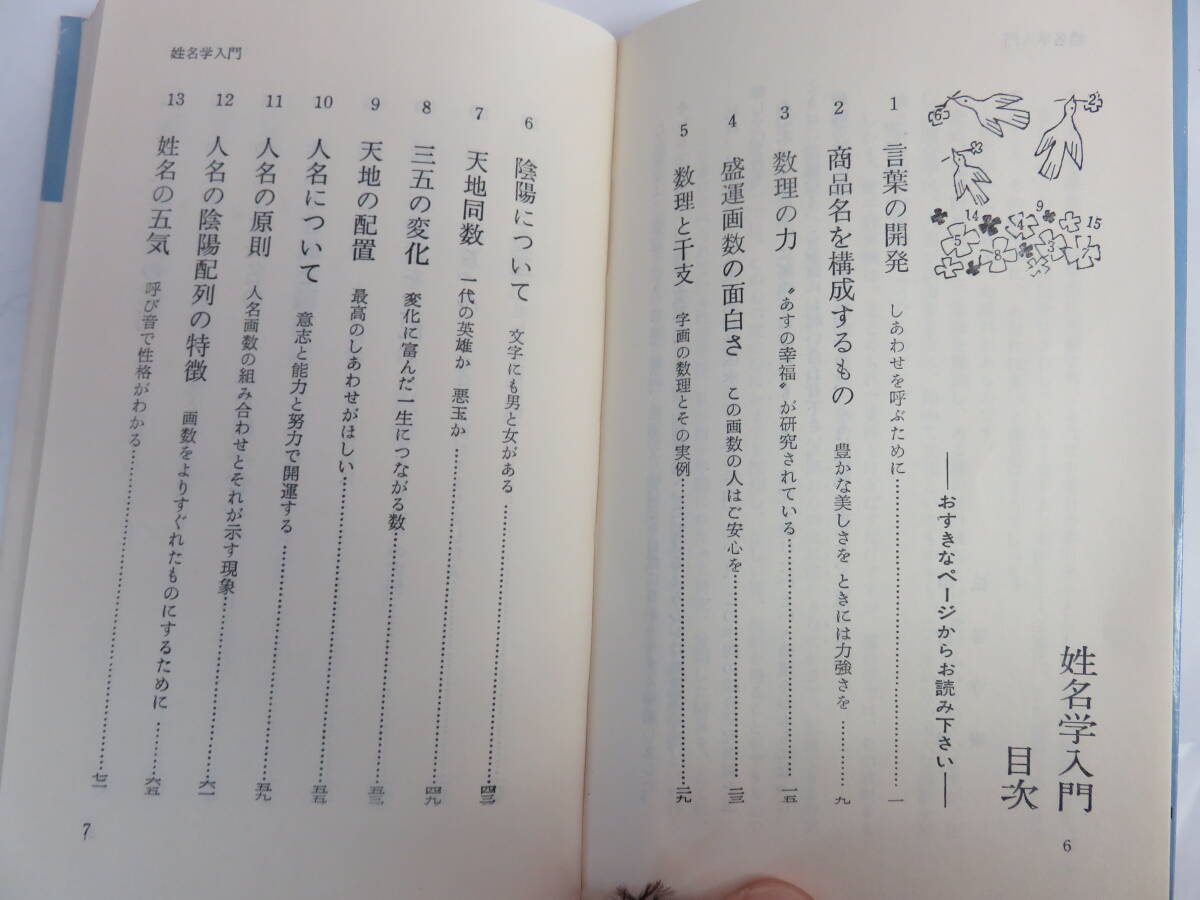 姓名学入門
目次
――おすきなページからお読み下さい――
1 言葉の開発 しあわせを呼ぶために…………一
2 商品名を構成するもの 豊かな美しさを ときには力強さを…………九
3 数理の力 〝あすの幸福〟が研究されている…………一五
4 盛運画数の面白さ この画数の人はご安心を…………二三
5 数理と干支 字画の数理とその実例…………二九
6
姓名学入門
6 陰陽について 文字にも男と女がある…………四三
7 天地同数 一代の英雄か 悪玉か…………四九
8 三五の変化 変化に富んだ一生につながる数…………五三
9 天地の配置 最高のしあわせがほしい…………五五
10 人名について 意志と能力と努力で開運する…………五九
11 人名の原則 人名画数の組み合わせとそれが示す現象…………六一
12 人名の陰陽配列の特徴 画数をよりすぐれたものにするために…………六五
13 姓名の五気 呼び音で性格がわかる…………七一
7
2
6
14
9
15
5
4
8
3